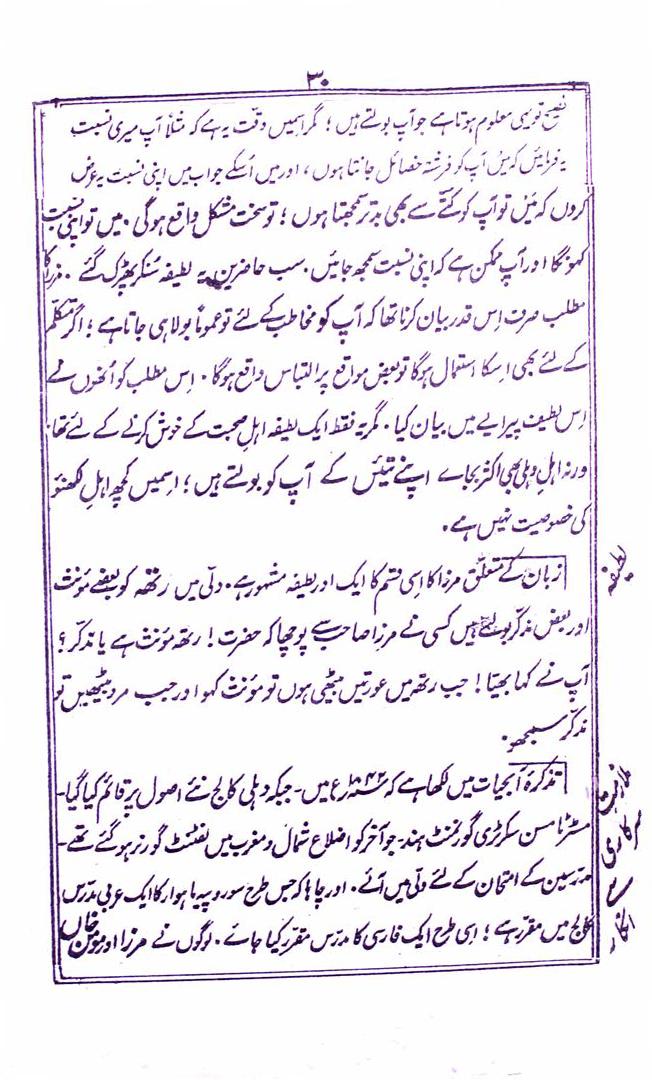 ۳۰
فصیح تو یہی معلوم ہوتا ہے جو آپ بولتے ہیں ؛ مگر اسمیں دقّت یہ ہے کہ مثلاً آپ میری نسبت
یہ فرمائیں کہ میں آپ کو فرشتہ خصائل جانتا ہوں ، اور میں اُسکے جواب میں اپنی نسبت یہ عرض
کروں کہ میں تو آپ کو کتّے سے بھی بدتر سمجھتا ہوں ؛ تو سخت مشکل واقع ہوگی ۔ میں تو اپنی نسبت
کہونگا اور آپ ممکن ہے کہ اپنی نسبت سمجھ جائیں ۔ سب حاضرین یہ لطیفہ سُنکر پھڑک گئے ۔ مرزا کا
مطلب صرف اِس قدر بیان کرنا تھا کہ آپ کو مخاطب کے لئے تو عموماً بولا ہی جاتا ہے ؛ اگر متکلّم
کے لئے بھی اسکا استعمال ہوگا تو بعض مواقع پر التباس واقع ہوگا ۔ اِس مطلب کو اُنھوں نے
اِس لطیف پیرایے میں بیان کیا ۔ مگر یہ فقط ایک لطیفہ اہلِ صحبت کے خوش کرنے کے لئے تھا ؛
ورنہ اہلِ دہلی بھی اکثر بجاے اپنے تئیں کے آپ کو بولتے ہیں ؛ اِسمیں کچھ اہلِ لکھنؤ
کی خصوصیت نہیں ہے ۔
لطیفہ
زبان کے متعلّق مرزا کا اِسی قسم کا ایک اور لطیفہ مشہور ہے ۔ دلّی میں رتھ کو بعضے مؤنث
اور بعض مذکّر بولتے ہیں کسی نے مرزا صاحب سے پوچھا کہ حضرت ! رتھ مؤنث ہے یا مذکّر ؟
آپ نے کہا بھیّا ! جب رتھ میں عورتیں بیٹھی ہوں تو مؤنث کہو اور جب مرد بیٹھیں تو
مذکّر سمجھو ۔
ملازمت سرکاری سے انکار
تذکرۂ آبحیات میں لکھا ہے کہ ۱۸۴۲ء میں ۔ جبکہ دہلی کالج نئے اصول پر قائم کیا گیا ۔
مسٹر ٹامسن سکرٹری گورنمنٹ ہند ۔ جو آخر کو اضلاع شمال و مغرب میں لفٹنٹ گورنر ہو گئے تھے ۔
مدرّسین کے امتحان کے لئے دلّی میں آئے ۔ اور چاہا کہ جس طرح سو روپیہ ماہوار کا ایک عربی مدرّس
کالج میں مقرر ہے ؛ اِسی طرح ایک فارسی کا مدرّس مقرّر کیا جائے ۔ لوگوں نے مرزا اور مومن خاں